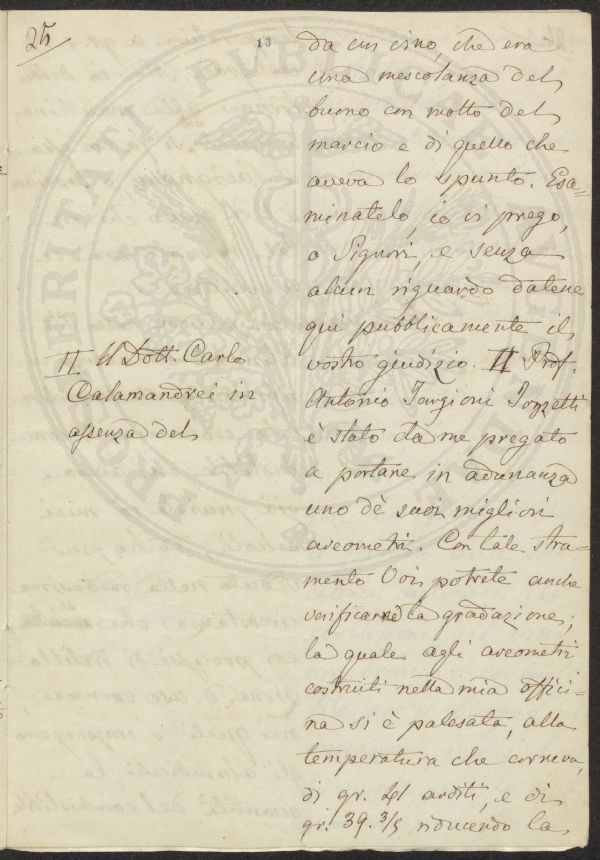 25
13
da un vino, che era
una mescolanza del
buono con molto del
marcio e di quello che
aveva lo spunto. Esa=
minatelo, io vi prego,
o Signori, e senza
alcun riguardo datene
qui pubblicamente il
vostro giudizio. II Prof.
Antonio Targioni Tozzetti
è stato da me pregato
a portare in adunanza
uno dè suoi migliori
areometri. Con tale stru=
mento Voi potrete anche
verificarne la gradazione;
la quale agli areometri
costruiti nella mia offici=
na si è palesata, alla
temperatura che correva,
di gr. 41 arditi, e di
gr. 39. 3/5 riducendo la
II Il Dott. Carlo
Calamandrei in
assenza del